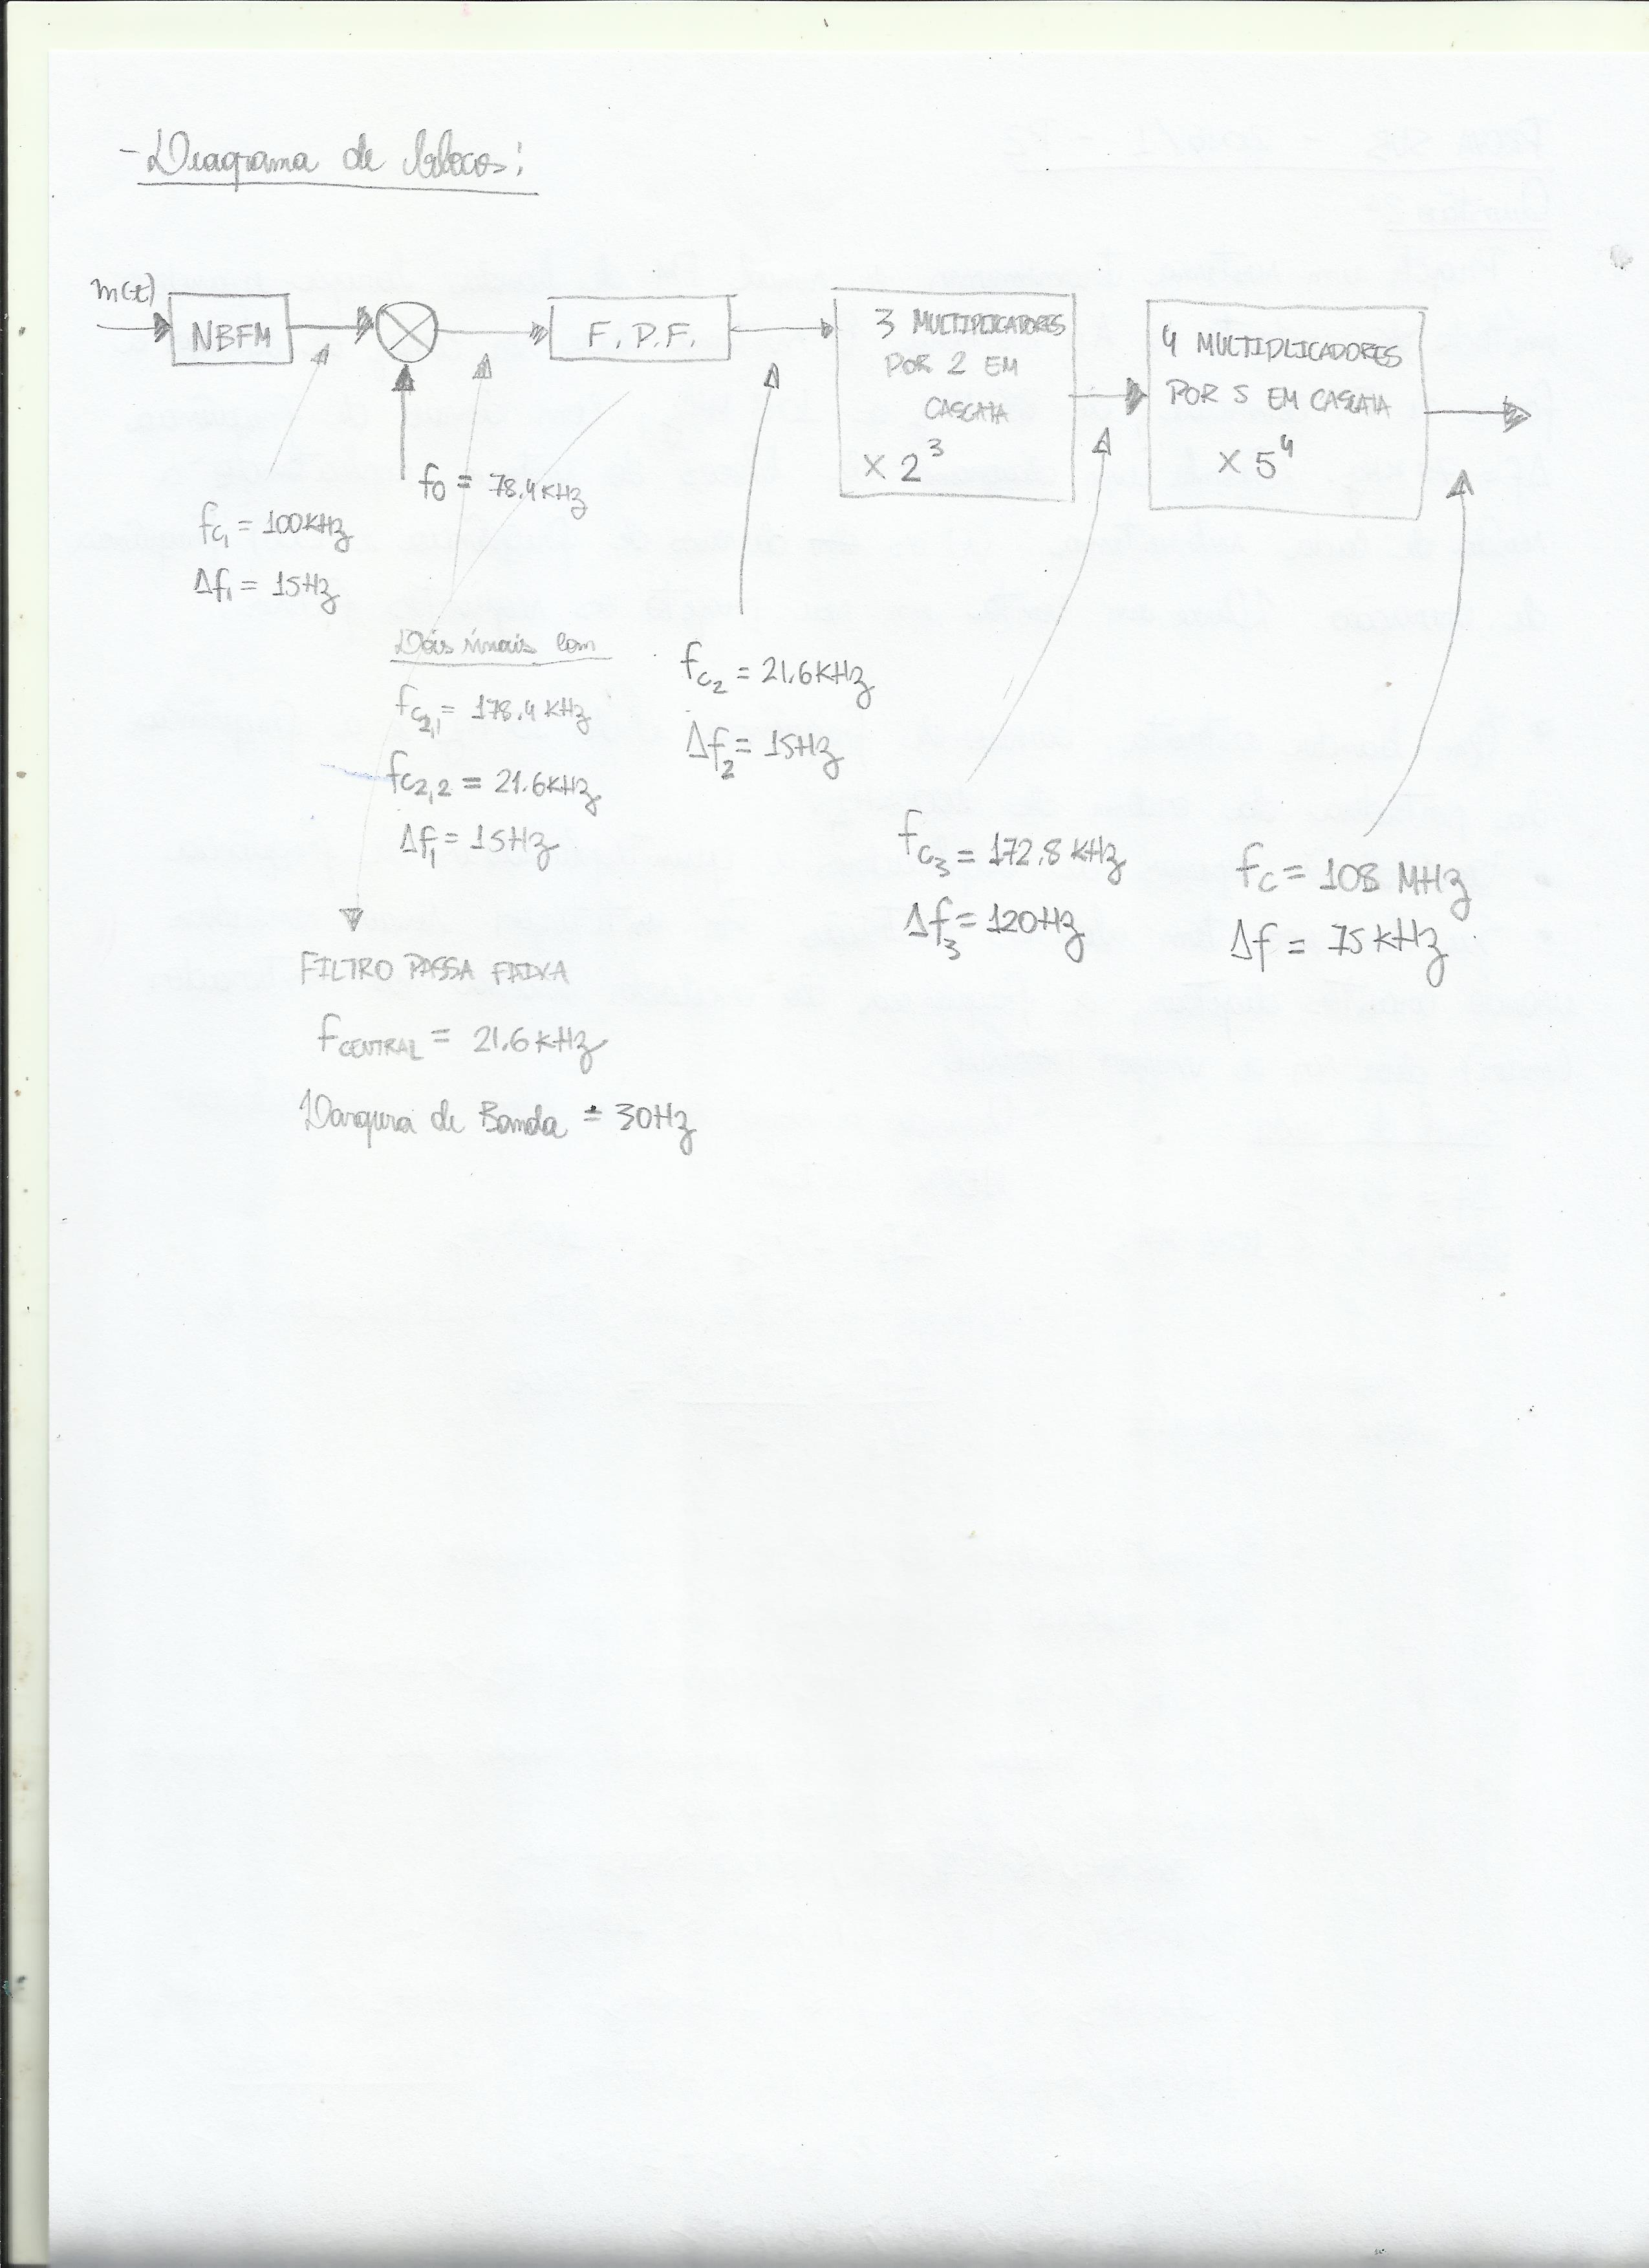 - Diagrama de blocos:
m(t)
NBFM
F.P.F.
3 MULTIPLICADORES
POR 2 EM
CASCATA
× 2³
4 MULTIPLICADORES
POR 5 EM CASCATA
× 5⁴
f0 = 78.4 KHz
fc₁ = 100KHz
Δf₁ = 15Hz
Dois sinais com
fc₂,₁ = 178.4 KHz
fc₂,₂ = 21.6KHz
Δf₁ = 15Hz
fc₂ = 21.6KHz
Δf₂ = 15Hz
fc₃ = 172.8 KHz
Δf₃ = 120Hz
fc = 108 MHz
Δf = 75 KHz
FILTRO PASSA FAIXA
fCENTRAL = 21.6 KHz
Largura de Banda = 30Hz